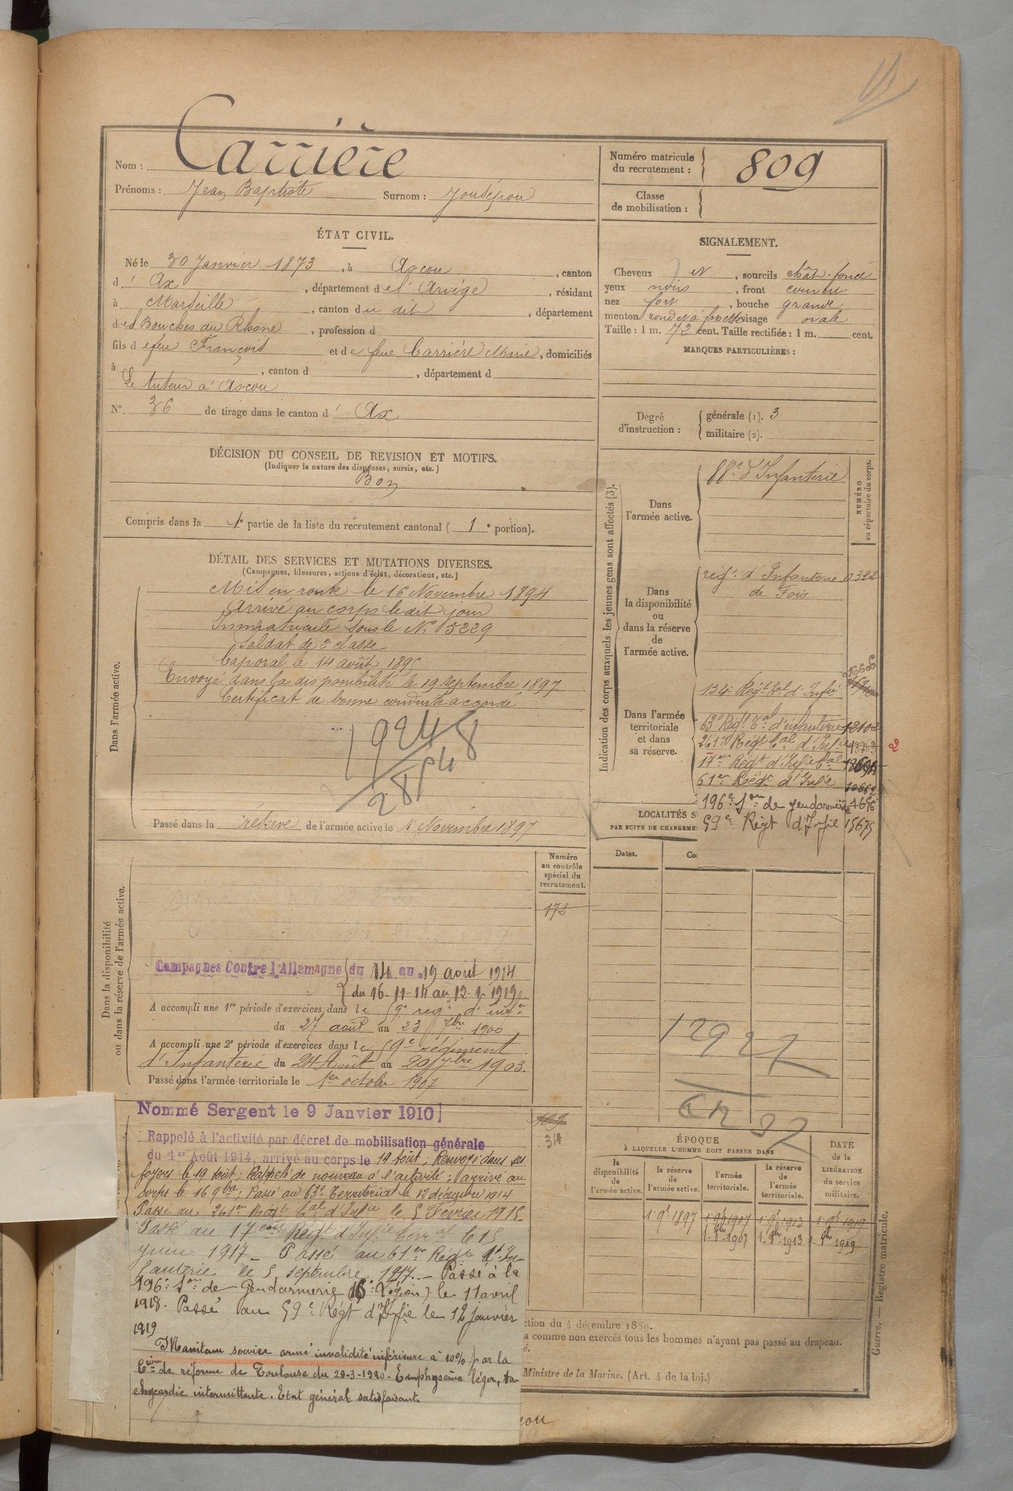 Nom : Carrière
Prénoms : Jean Baptiste Surnom :
Numéro matricule du recrutement : 809
Classe de mobilisation :
ÉTAT CIVIL.
Né le 30 Janvier 1873, à Ascou, canton
d' Ax, département de l'Ariège, résidant
à Marseille, canton du dit, département
des Bouches du Rhône, profession d
fils de feu François et de feue Carrière Marie, domiciliés
à , canton d , département d
Le tuteur à Ascou
N° 36 de tirage dans le canton d' Ax
SIGNALEMENT.
Cheveux N, sourcils chât. foncé
yeux noirs, front couvert
nez fort, bouche grande
menton rond visage ovale
Taille : 1 m. 72 cent. Taille rectifiée : 1 m. cent.
MARQUES PARTICULIÈRES :
Degré d'instruction : générale (1). 3
militaire (2).
DÉCISION DU CONSEIL DE REVISION ET MOTIFS.
(Indiquer la nature des dispenses, sursis, etc.)
Bon
Compris dans la 1e partie de la liste du recrutement cantonal ( 1e portion).
DÉTAIL DES SERVICES ET MUTATIONS DIVERSES.
(Campagnes, blessures, actions d'éclat, décorations, etc.)
Dans l'armée active.
Mis en route le 16 Novembre 1894
Arrivé au corps le dit jour
Immatriculé sous le N° 5229
Soldat de 2e classe
Caporal le 14 août 1895
Envoyé dans la disponibilité le 19 septembre 1897
Certificat de bonne conduite accordé
Passé dans la réserve de l'armée active le 1 Novembre 1897
Indication des corps auxquels les jeunes gens sont affectés (3).
NUMÉRO au répertoire du corps.
Dans l'armée active.
88e d'Infanterie
Dans la disponibilité ou dans la réserve de l'armée active.
régt d'Infanterie 0322
de Foix
Dans l'armée territoriale et dans sa réserve.
134e Régt tal d'Infie
63e Régt tal d'infanterie 12102
261e Regt tal d'Infie 18763
17me Régt d'Infie tal
61me Régt d'Infie
196e Son de gendarmerie
59e Régt d'Infie 15675
LOCALITÉS S
PAR SUITE DE CHANGEME
Dates.
Co
Numéro au contrôle spécial du recrutement.
172
Dans la disponibilité ou dans la réserve de l'armée active.
Campagnes Contre l'Allemagne du 14 au 19 août 1914
du 16-11-14 au 12-1-1919
A accompli une 1re période d'exercices dans le 59e régt d'infie
du 27 août au 23 7bre 1900
A accompli une 2e période d'exercices dans le 59e régiment
d'Infanterie du 24 Août au 20 7bre 1903
Passé dans l'armée territoriale le 1er octobre 1907
Nommé Sergent le 9 Janvier 1910
Rappelé à l'activité par décret de mobilisation générale
du 1er Août 1914, arrivé au corps le 14 Août, Renvoyé dans ses
foyers le 19 août, Rappelé de nouveau à l'activité, arrivé au
corps le 16 9bre, Passé au 63e Territorial le 13 décembre 1914
Passé au 261e Régt tal d'Infie le 5 Février 1915
Passé au 17eme Régt d'Infie Terral le 15
juin 1917 - Passé au 61me Regt d'In-
fanterie le 5 septembre 1917 - Passé à la
196e Son de Gendarmerie (16e Région) le 11 avril
1918. Passé au 59e Régt d'Infie le 12 janvier
1919
Maintenu service armé invalidité inférieure à 10% par la
Con de réforme de Toulouse du 29-3-1920. Emphysème léger, ta-
chycardie intermittente. Etat général satisfaisant.
ÉPOQUE
À LAQUELLE L'HOMME DOIT PASSER DANS
DATE DE LA LIBÉRATION du service militaire.
la disponibilité de l'armée active.
la réserve de l'armée active.
l'armée territoriale.
la réserve de l'armée territoriale.
1. 9e 1897 1. 9e 1907 1. 9e 1913 1. 9e 1919
1. 8re 1907 1. 8re 1913 1. 8re 1919
tion du 4 décembre 1889.
a comme non exercés tous les hommes n'ayant pas passé au drapeau.
Ministre de la Marine. (Art. 4 de la loi.)
Guerre. — Registre matricule.